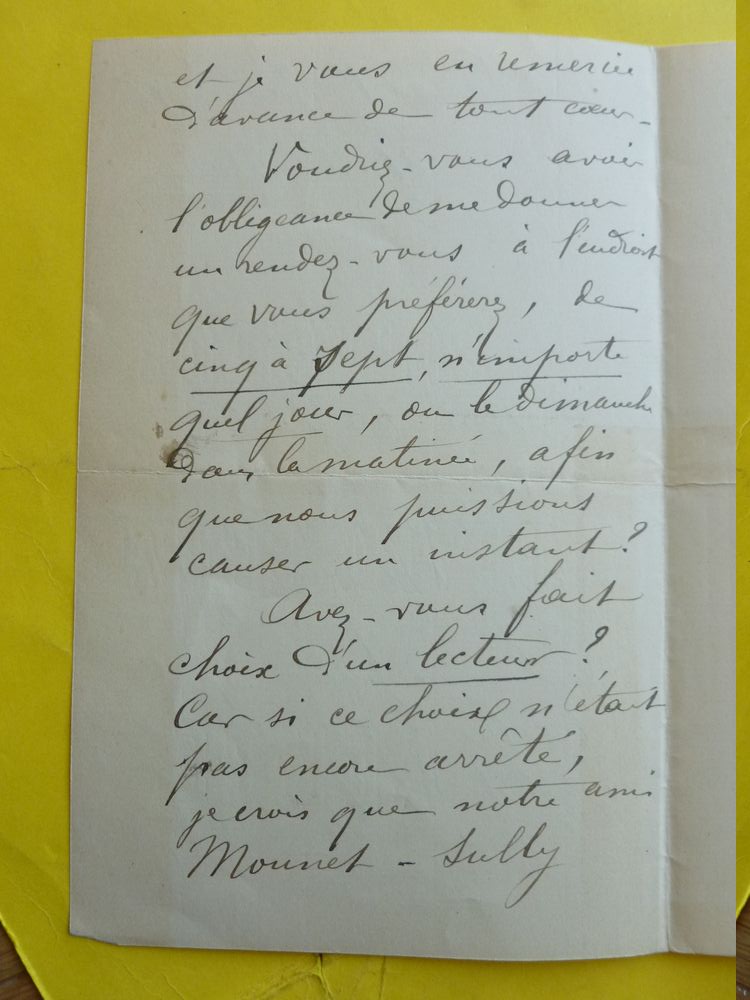 et je vous en remercie
d'avance de tout cœur -
Voudriez-vous avoir
l'obligeance de me donner
un rendez-vous à l'endroit
que vous préférerez, de
cinq à sept, n'importe
quel jour, ou le dimanche
dans la matinée, afin
que nous puissions
causer un instant ?
Avez-vous fait
choix d'un lecteur ?
Car si ce choix n'était
pas encore arrêté,
je crois que notre ami
Mounet - Sully